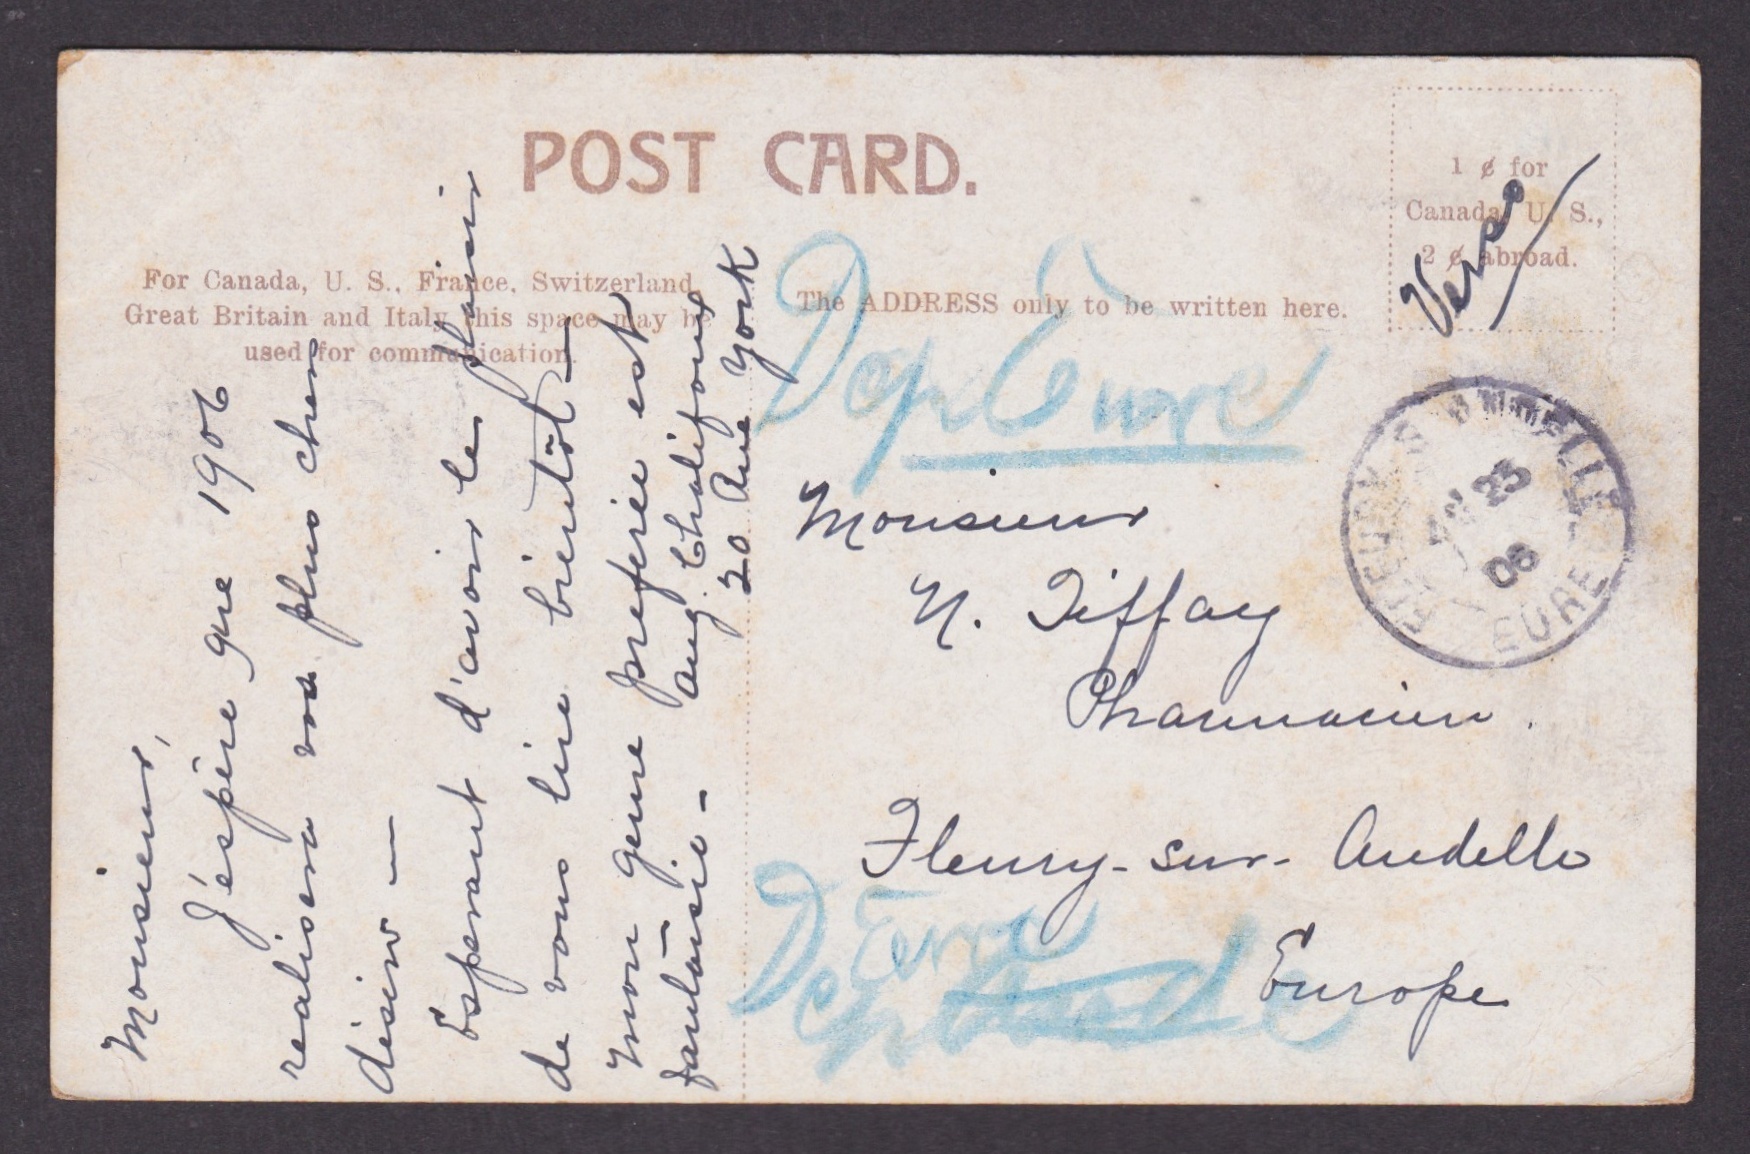 POST CARD.
For Canada, U. S., France, Switzerland,
Great Britain and Italy this space may be
used for communication.
The ADDRESS only to be written here.
1 ¢ for
Canada, U. S.,
2 ¢ abroad.
Verso
Monsieur,
J'espère que 1906
realisera vos plus chers
désirs —
Esperant d'avoir le plaisir
de vous lire bientôt —
Mon genre preferée est
fantaisie —
Aug. Chalifoux
20 Ave York
Dep Eure
Monsieur
N. Tiffay
Pharmacien.
Fleury-sur-Andelle
Europe
Eure
Dep
FLEURY S ANDELLE
23
06
EURE